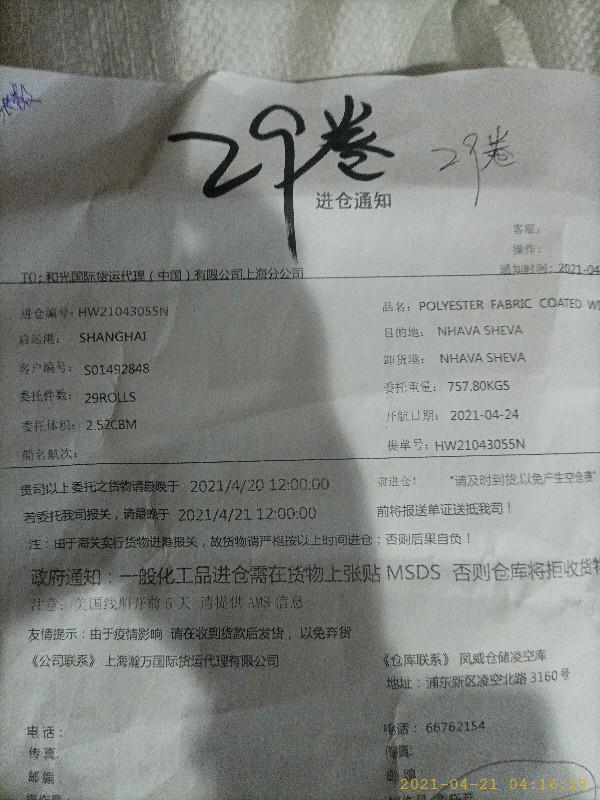 29卷
29卷
进仓通知
客服：
操作：
通知时间：2021-04
TO：和光国际货运代理（中国）有限公司上海分公司
进仓编号：HW21043055N
品名：POLYESTER FABRIC COATED WI
启运港：SHANGHAI
目的地：NHAVA SHEVA
客户编号：S01492848
卸货港：NHAVA SHEVA
委托件数：29ROLLS
委托重量：757.80KGS
委托体积：2.52CBM
开航日期：2021-04-24
船名航次：
提单号：HW21043055N
贵司以上委托之货物请最晚于 2021/4/20 12:00:00 前进仓！ "请及时到货,以免产生空仓费"
若委托我司报关，请最晚于 2021/4/21 12:00:00 前将报送单证送抵我司！
注：由于海关实行货物进港报关，故货物请严格按以上时间进仓；否则后果自负！
政府通知：一般化工品进仓需在货物上张贴 MSDS 否则仓库将拒收货物
注意：美国线船开前5天 请提供AMS信息
友情提示：由于疫情影响 请在收到货款后发货，以免弃货
《公司联系》上海瀚万国际货运代理有限公司
《仓库联系》凤威仓储凌空库
地址：浦东新区凌空北路3160号
电话：
电话：66762154
传真:
传真:
邮编
邮编
2021-04-21 04:16:29